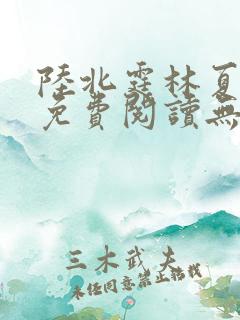 陸北霆林夏
免費閱讀無
三木武夫
未經同意禁止轉載